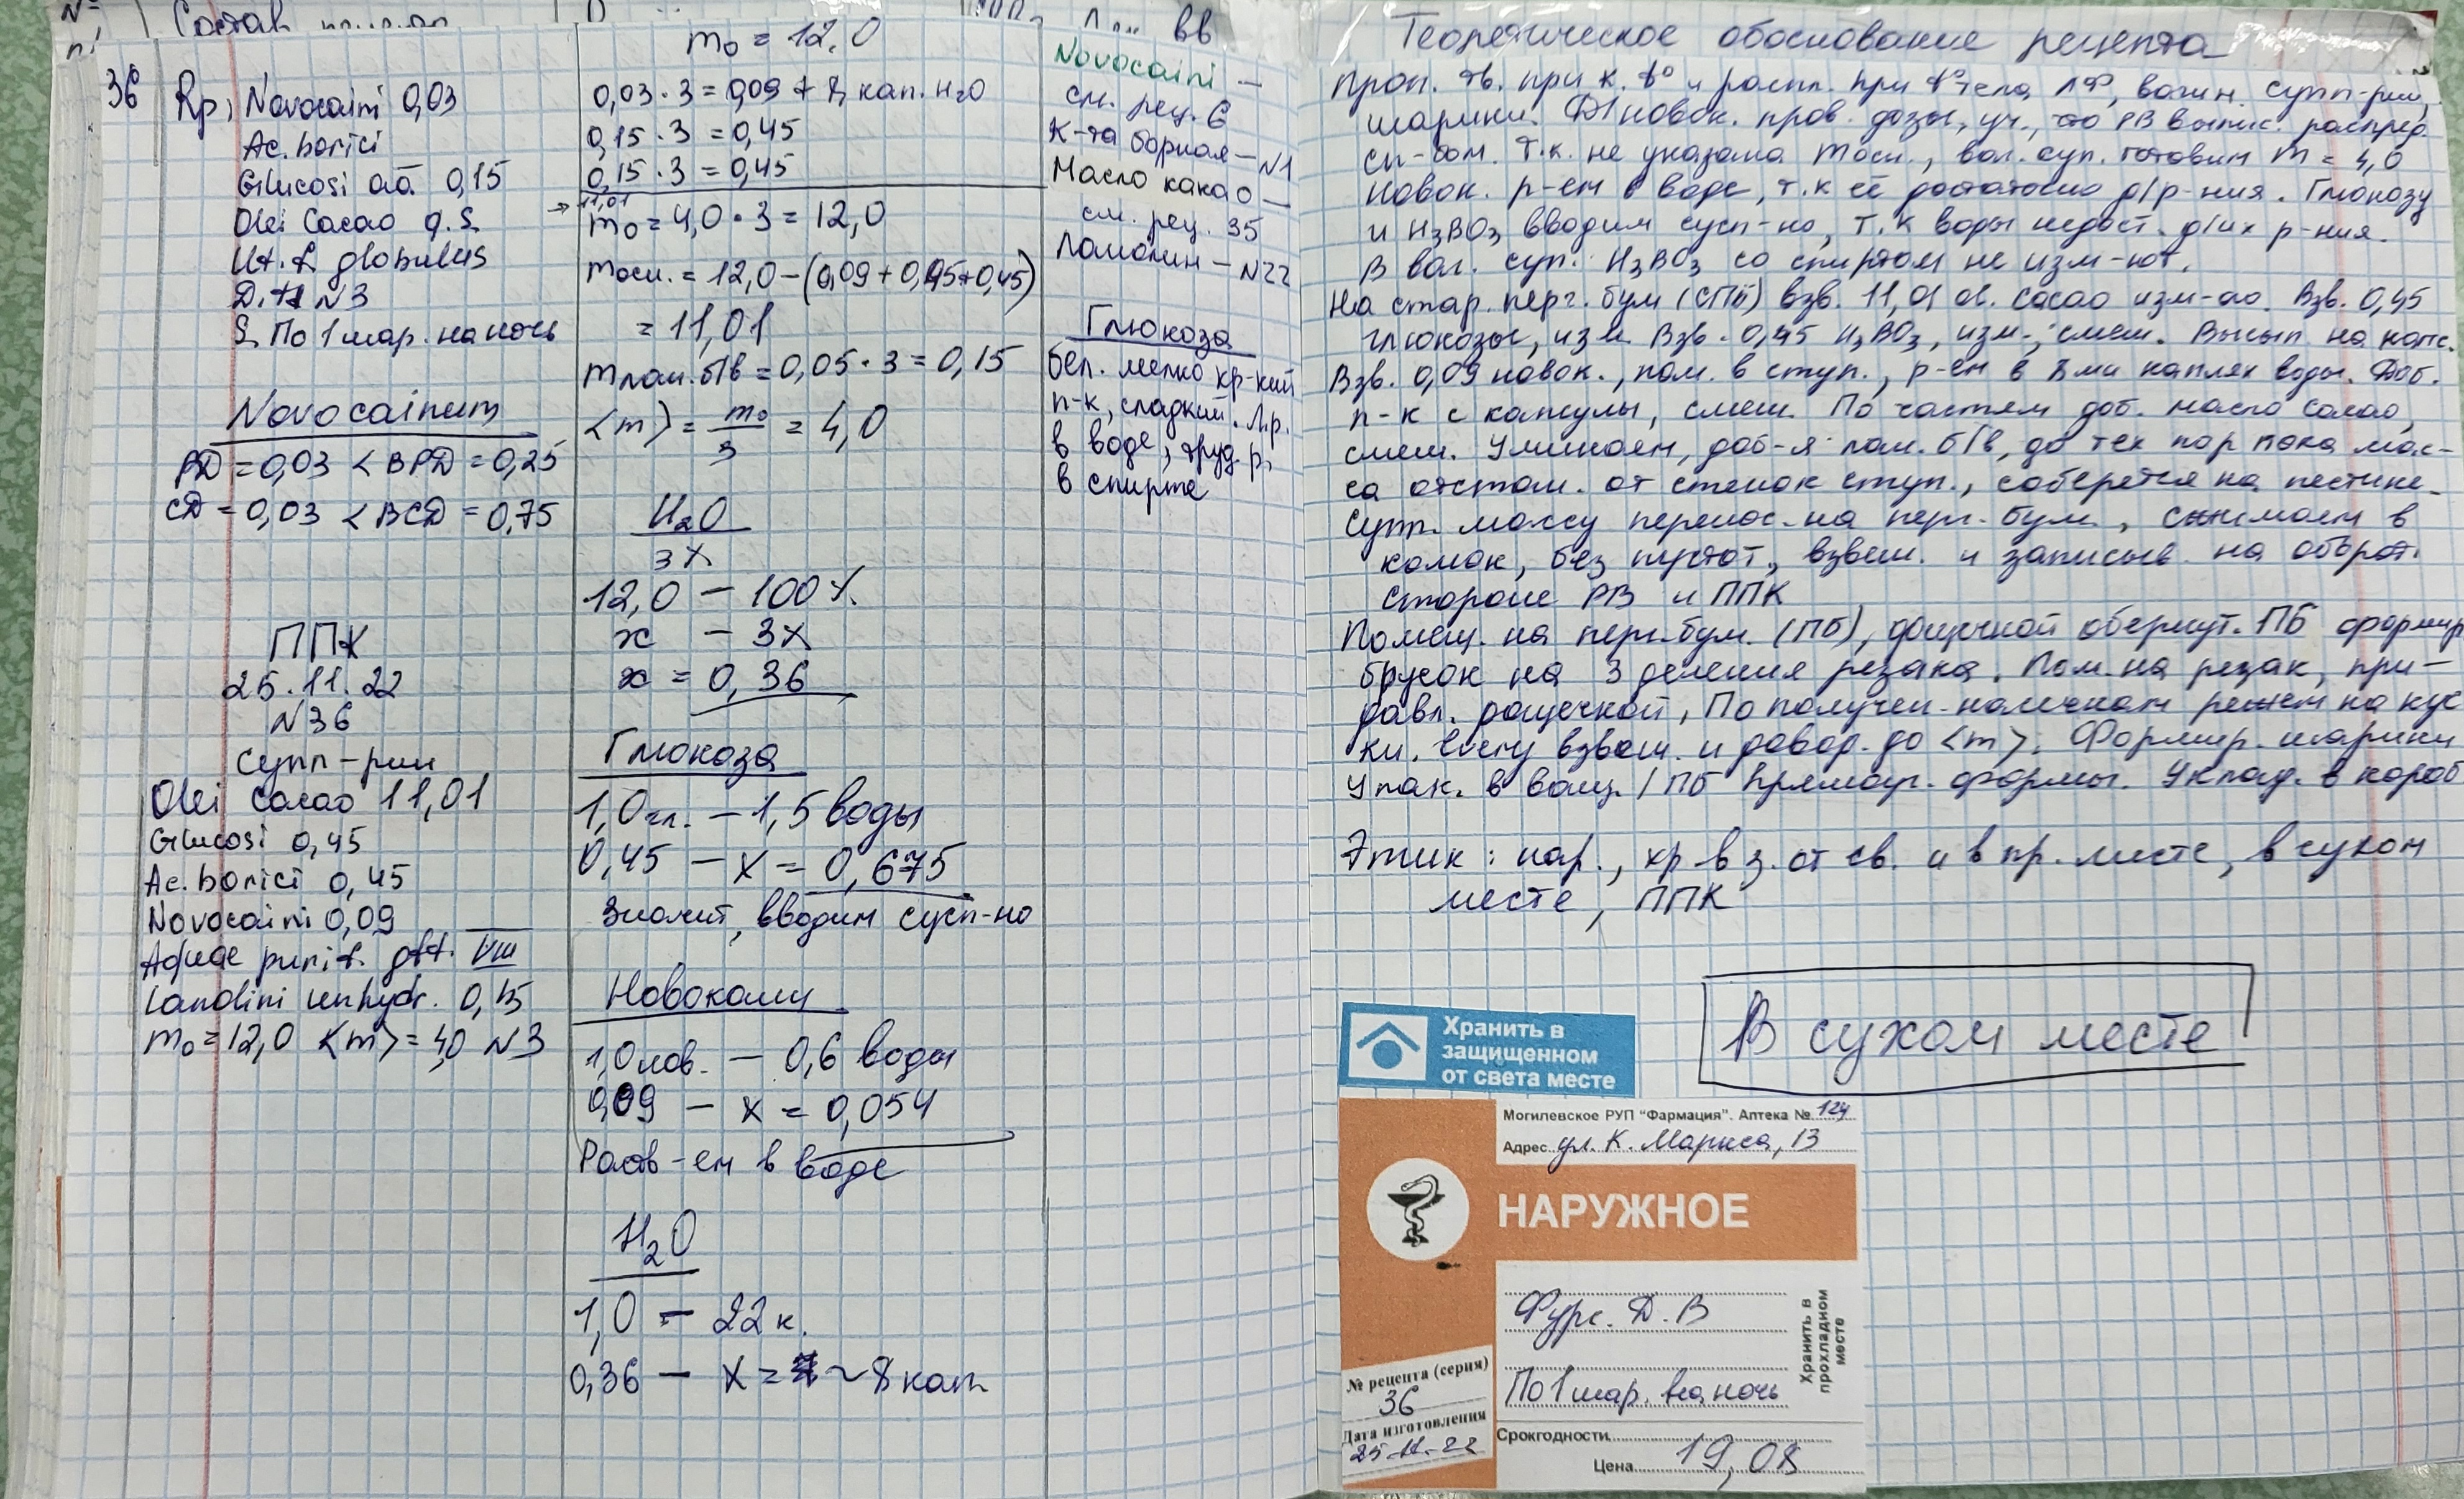 Состав
вв
36
Rp: Novocaini 0,03
Ac. borici
Glucosi āā 0,15
Olei Cacao q.s.
Ut. f. globulus
D.t.d N3
S. По 1 шар. на ночь
Novocainum
РД = 0,03 < ВРД = 0,25
СД = 0,03 < ВСД = 0,75
ППК
25.11.22
N36
Супп-рии
Olei Cacao 11,01
Glucosi 0,45
Ac. borici 0,45
Novocaini 0,09
Aquae purif. gtt. VIII
Lanolini anhydr. 0,15
m₀ = 12,0 <m> = 4,0 N3
m₀ = 12,0
0,03 · 3 = 0,09 + 8 кап. H₂O
0,15 · 3 = 0,45
0,15 · 3 = 0,45
→ 11,01
m₀ = 4,0 · 3 = 12,0
mосн. = 12,0 – (0,09 + 0,45 + 0,45)
= 11,01
mлан. б/в = 0,05 · 3 = 0,15
<m> = m₀/3 = 4,0
H₂O
3%
12,0 – 100%
x – 3%
x = 0,36
Глюкоза
1,0 гл. – 1,5 воды
0,45 – x = 0,675
Значит, вводим сусп-но
Новокаин
1,0 нов. – 0,6 воды
0,09 – x = 0,054
Раств-ем в воде
H₂O
1,0 – 22 к.
0,36 – x = ~ 8 кап
Novocaini –
см. рец. 6
К-та борная – N1
Масло какао –
см. рец. 35
Ланолин – N22
Глюкоза
бел. мелко кр-кий
п-к, сладкий. Л.р.
в воде, труд. р.
в спирте
Теоретическое обоснование рецепта
Проп. тв. при к. t° и распл. при t° тела ЛФ, вагин. супп-рии,
шарики. Д/новок. пров. дозы, уч., что РВ выпис. распред.
сп-бом. Т.к. не указана mосн., ваг. суп. готовим m = 4,0
Новок. р-ем в воде, т.к её достаточно д/р-ния. Глюкозу
и H₃BO₃ вводим сусп-но, т.к воды недост. д/их р-ния.
В ваг. суп. H₃BO₃ со спиртом не изм-ют.
На стар. перг. бум (СПБ) взв. 11,01 ol. Cacao изм-го. Взв. 0,45
глюкозы, изм. Взв. 0,45 H₃BO₃, изм., смеш. Высып. на капс.
Взв. 0,09 новок., пом. в ступ., р-ем в 8ми каплях воды. Доб.
п-к с капсулы, смеш. По частям доб. масло Cacao,
смеш. Уминаем, доб-я лан. б/в, до тех пор пока мас-
са отстан. от стенок ступ., соберется на пестике.
Супп. массу перенос. на перг. бум., сжимаем в
комок, без пустот, взвеш. и записыв. на оборот.
стороне РВ и ППК
Помещ. на перг. бум. (ПБ), дощечкой обернут. ПБ формир
брусок на 3 деления резака. Пом. на резак, при-
давл. дощечкой, По получен. полочкам режем на кус
ки. взвеш. и довод. до <m>. Формир. шарики
Упак. в вощ. / ПБ прямоуг. формы. Уклад. в короб
Этик: нар., хр в з. от св. и в пр. месте, в сухом
месте, ППК
В сухом месте
Хранить в
защищенном
от света месте
Могилевское РУП "Фармация". Аптека № 124
Адрес ул. К. Маркса, 13
НАРУЖНОЕ
Фурс. Д. В
По 1 шар. на ночь
Хранить в
прохладном
месте
№ рецепта (серия)
36
Дата изготовления
25-11-22
Срок годности
Цена 19,08